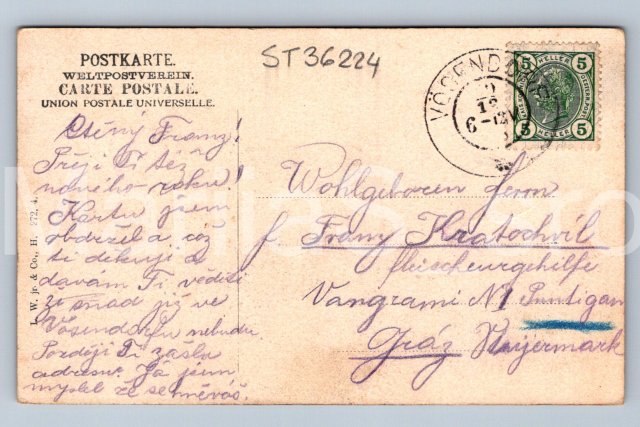 POSTKARTE.
WELTPOSTVEREIN.
CARTE POSTALE.
UNION POSTALE UNIVERSELLE.
ST36224
VÖSENDORF
5 HELLER 5
5 HELLER 5
Ctěný Franz!
Přeji Ti též
nového roku!
Kartu jsem
obdržel a
ti děkuji a
davám Ti věděti
že snad již ve
Vösendorfu nebudu.
Později Ti zašlu
adresu. Já jsem
myslel že se
Wohlgeboren Herrn
Franz Kratochvíl
fleischergehilfe
Vangrami N1 Puntigam
Gráz Steijermark
L. W. jr. & Co., H. 272, 4.